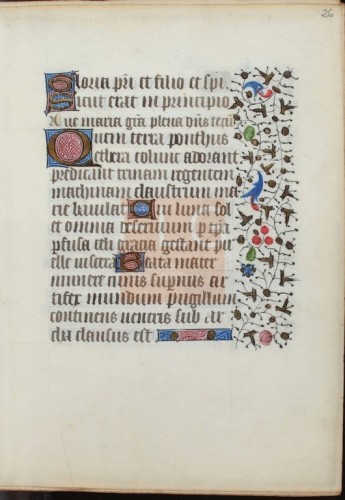 26
Gloria pri et filio et spi
Sicut erat in principio
Aue maria gra plena dns tecu
Quem terra ponthus
ethera colunt adorant
predicant trinam regentem
machinam claustrum ma
rie baiulat Cui luna sol
et omnia deseruiunt p tpa
pfusa celi gracia gestant pu
elle viscera Beata mater
munere cuius supnus ar
tifex mundum pugillum
continens ventris sub ar
cha clausus est